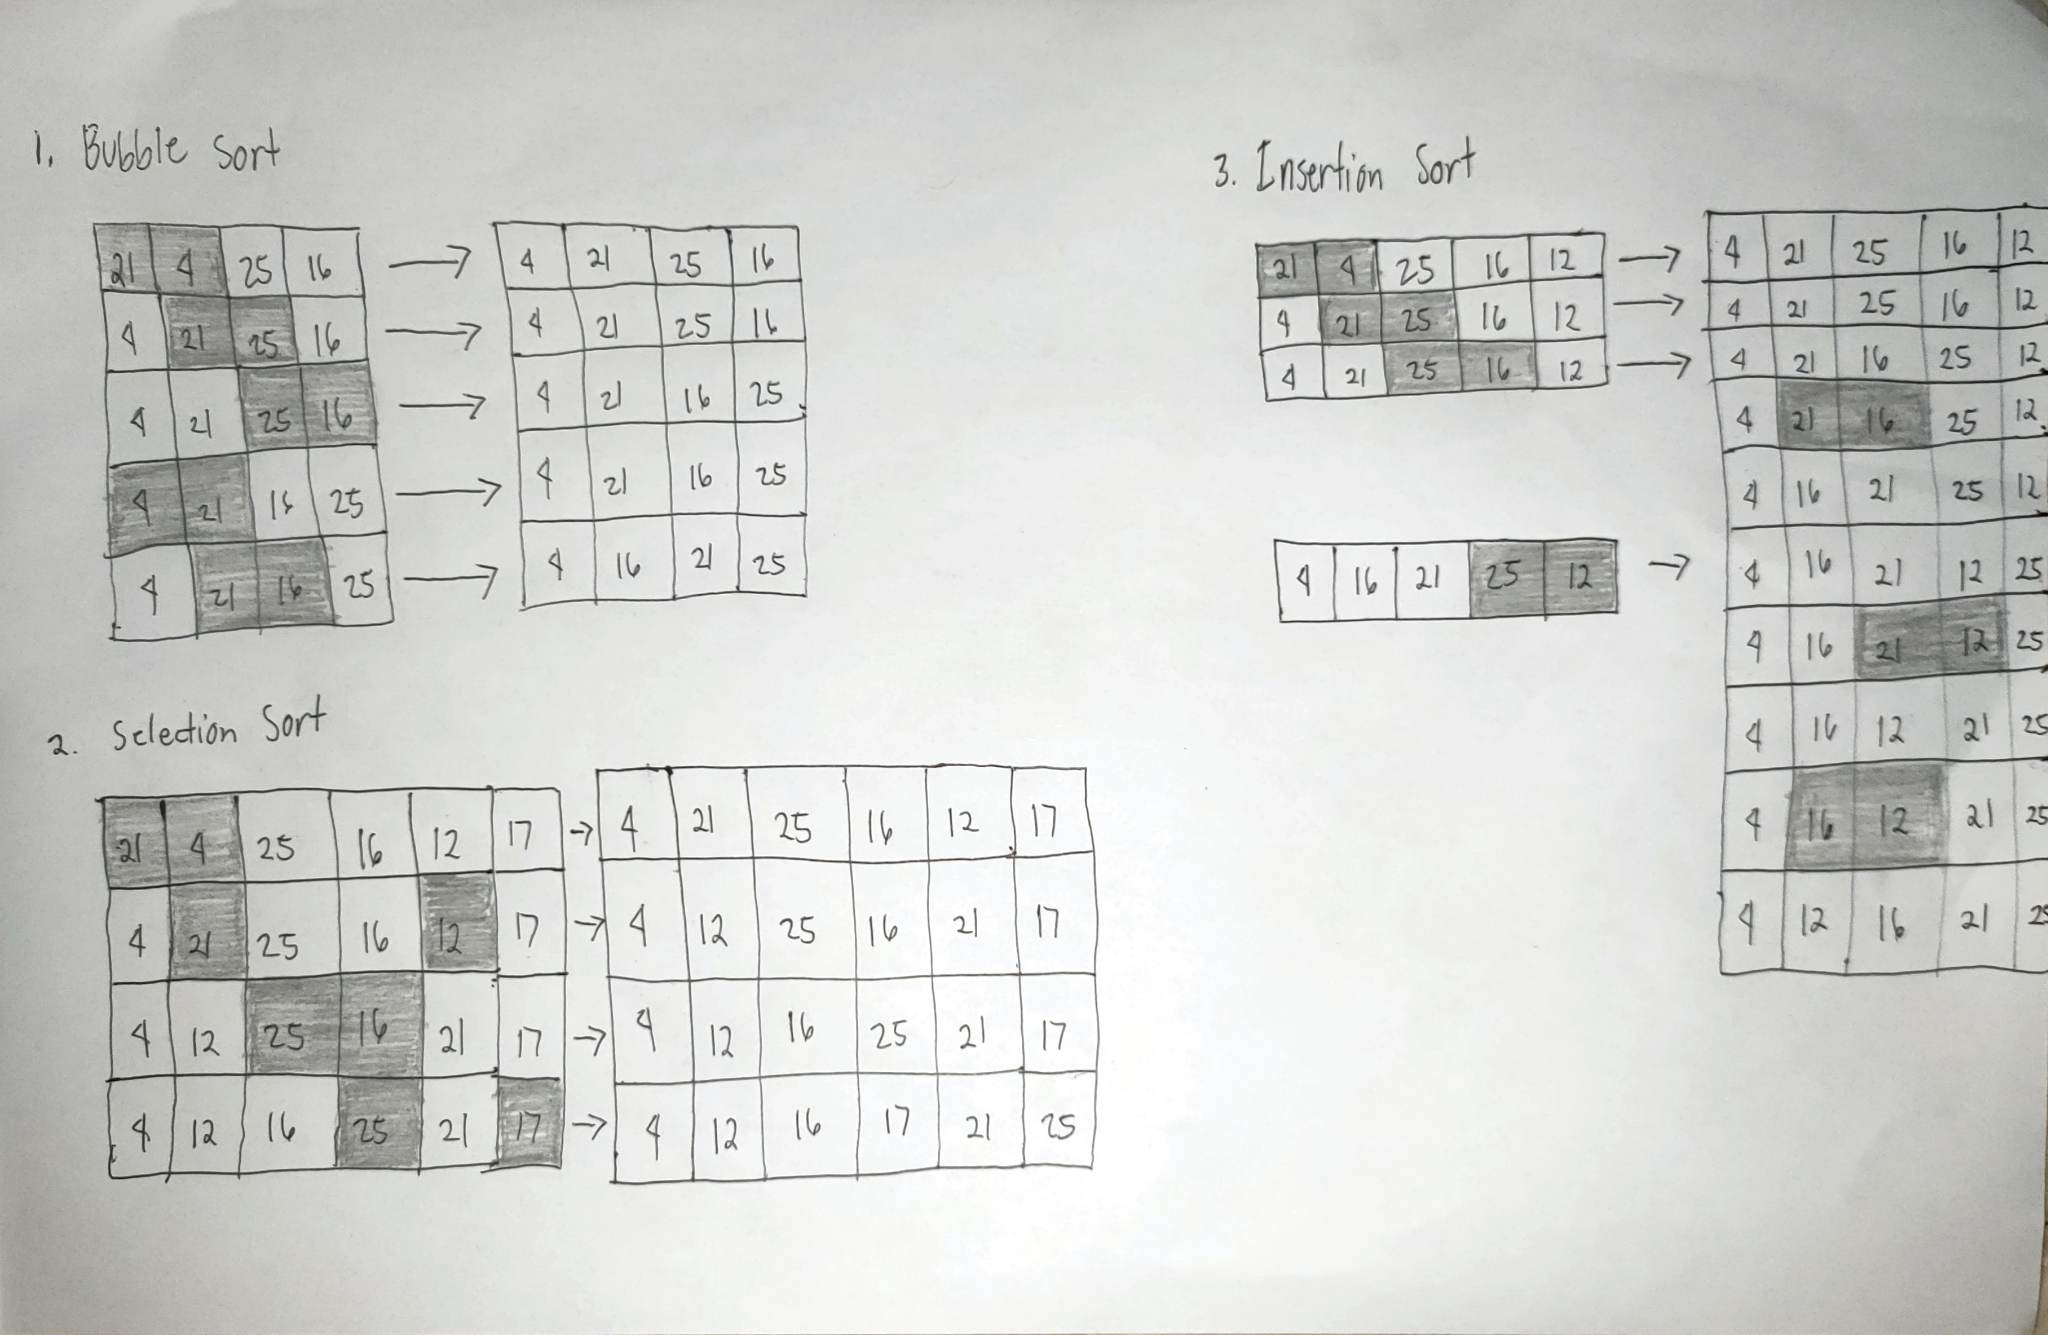 1. Bubble Sort
21 4 25 16 → 4 21 25 16
4 21 25 16 → 4 21 25 16
4 21 25 16 → 4 21 16 25
4 21 16 25 → 4 21 16 25
4 21 16 25 → 4 16 21 25
2. Selection Sort
21 4 25 16 12 17 → 4 21 25 16 12 17
4 21 25 16 12 17 → 4 12 25 16 21 17
4 12 25 16 21 17 → 4 12 16 25 21 17
4 12 16 25 21 17 → 4 12 16 17 21 25
3. Insertion Sort
21 4 25 16 12 → 4 21 25 16 12
4 21 25 16 12 → 4 21 25 16 12
4 21 25 16 12 → 4 21 16 25 12
4 21 16 25 12
4 16 21 25 12
4 16 21 25 12 → 4 16 21 12 25
4 16 21 12 25
4 16 12 21 25
4 16 12 21 25
4 12 16 21 25